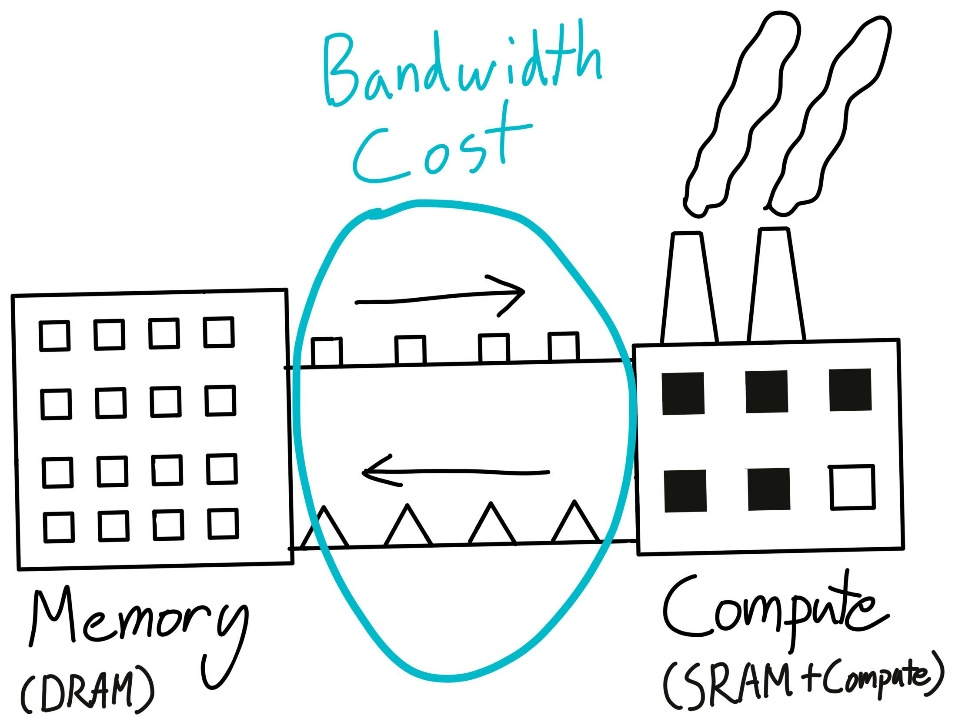 Bandwidth
Cost
Memory
(DRAM)
Compute
(SRAM + Compute)